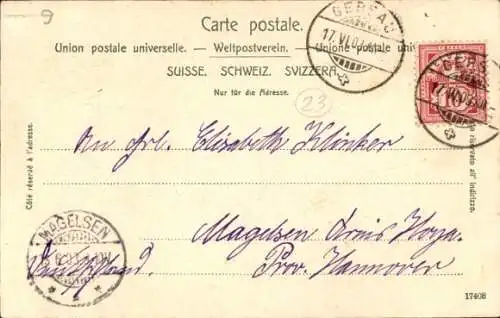 9
Carte postale.
Union postale universelle. — Weltpostverein. — Unione postale
SUISSE. SCHWEIZ. SVIZZERA.
Nur für die Adresse.
GERSAU
17.VI.0
10
23
Côté réservé à l'adresse.
riservato all' indirizzo.
An Frl. Elisabeth Klinker
Magelsen Kreis Hoya.
Prov. Hannover
Deutschland.
MAGELSEN
17408